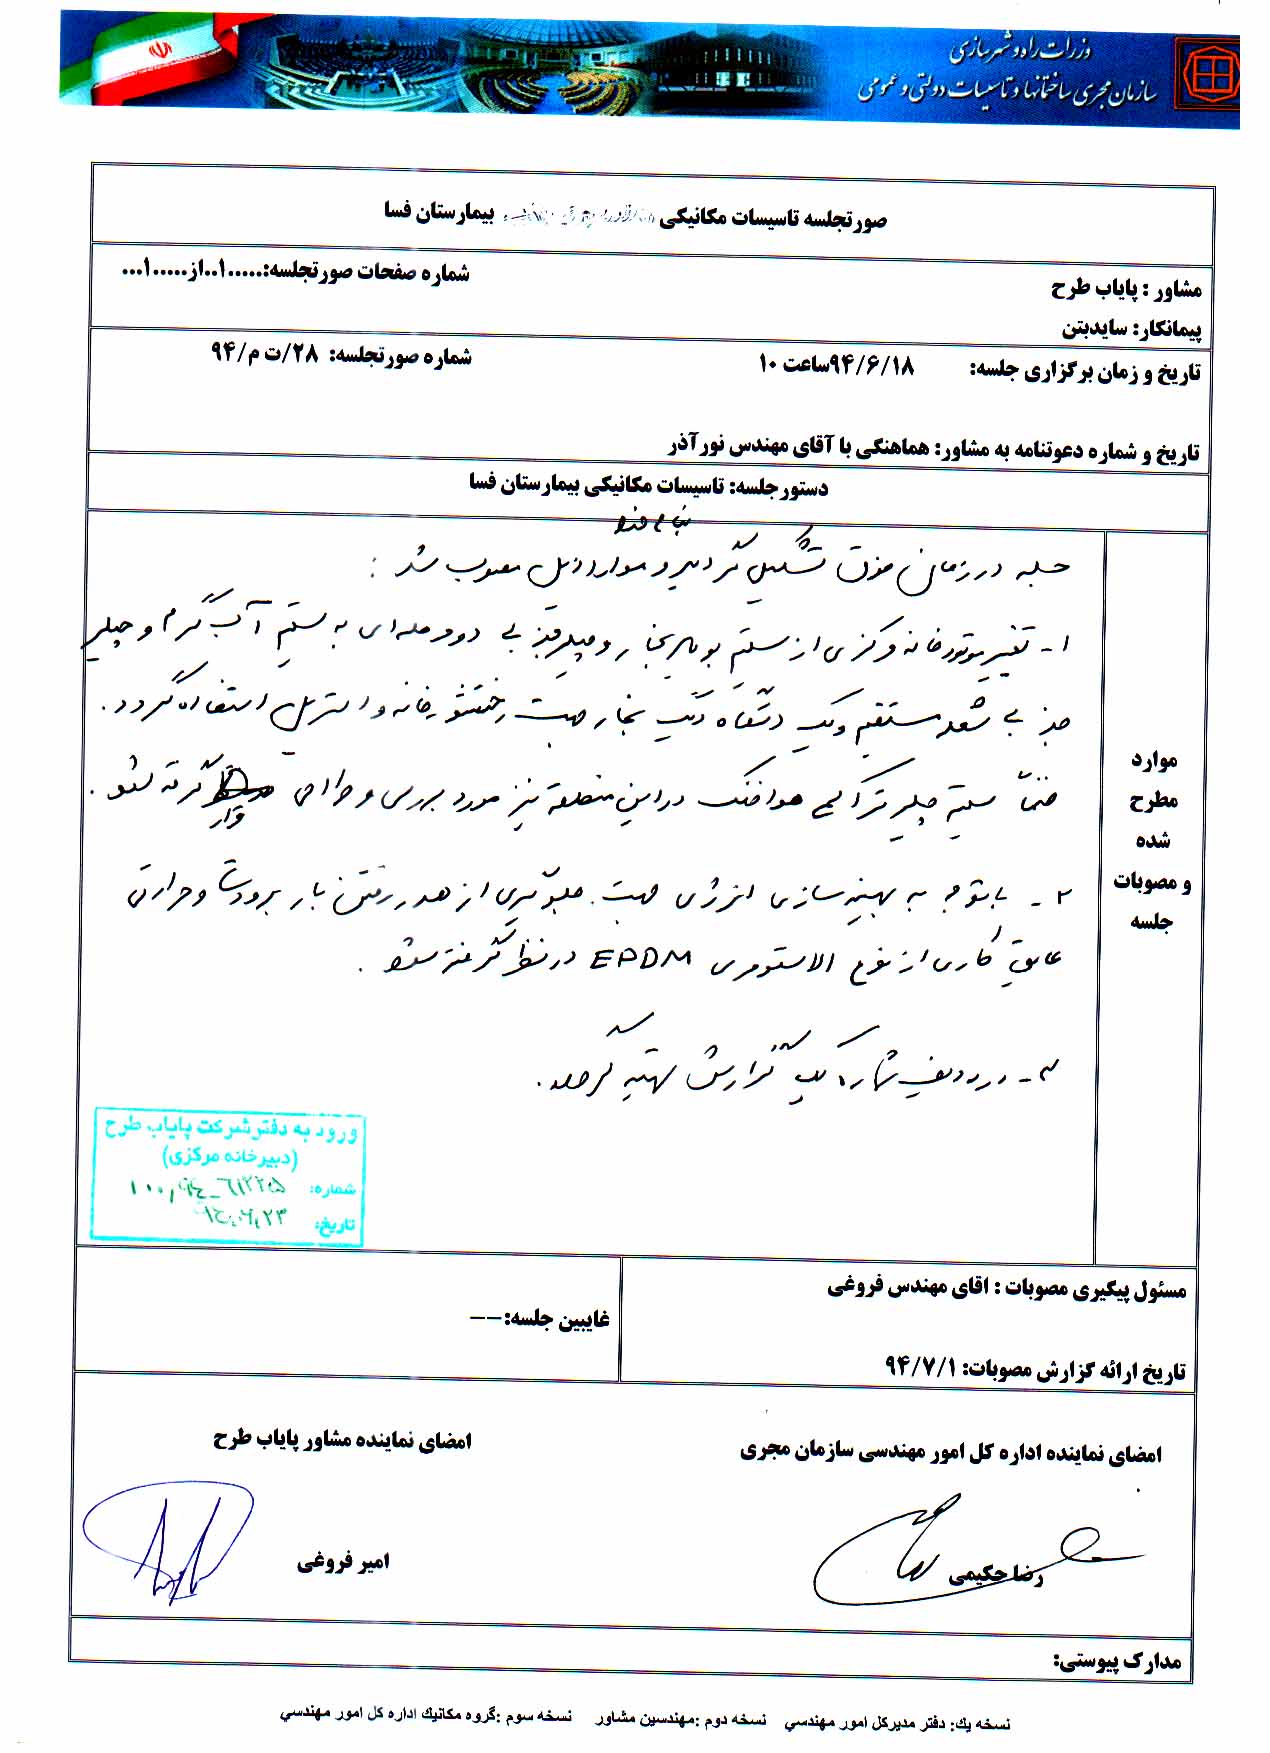 وزرات راه و شهرسازی
سازمان مجری ساختمانها و تاسیسات دولتی و عمومی
صورتجلسه تاسیسات مکانیکی بیمارستان فسا
مشاور : پایاب طرح
شماره صفحات صورتجلسه:.....۱..از.....۱...
پیمانکار: سایدبتن
تاریخ و زمان برگزاری جلسه: ۹۴/۶/۱۸ساعت ۱۰
شماره صورتجلسه: ۲۸/ت م/۹۴
تاریخ و شماره دعوتنامه به مشاور: هماهنگی با آقای مهندس نورآذر
دستورجلسه: تاسیسات مکانیکی بیمارستان فسا
موارد مطرح شده و مصوبات جلسه
بنام خدا
جلسه در زمانی فوق تشکیل گردید و موارد ذیل مصوب شد :
۱- تغییر موتورخانه مرکزی از سیستم بویلر بخار و چیلر جذبی دو مرحله‌ای به سیستم آب گرم و چیلر
جذبی شعله مستقیم و یک دستگاه دیگ بخار جهت رختشویخانه و استریل استفاده گردد.
ضمناً سیستم چیلر تراکمی هوا خنک در این منطقه نیز مورد بررسی و طراحی قرار گرفته شود .
۲ - با توجه به بهینه سازی انرژی جهت جلوگیری از هدر رفتن بار برودتی و حرارتی
عایق کاری از نوع الاستومری EPDM در نظر گرفته شود .
۳- در ردیف شماره یک گزارش تهیه گردد.
ورود به دفتر شرکت پایاب طرح
(دبیرخانه مرکزی)
شماره:
تاریخ:
مسئول پیگیری مصوبات : اقای مهندس فروغی
غایبین جلسه:--
تاریخ ارائه گزارش مصوبات: ۹۴/۷/۱
امضای نماینده اداره کل امور مهندسی سازمان مجری
امضای نماینده مشاور پایاب طرح
رضا حکیمی
امیر فروغی
مدارک پیوستی:
نسخه یك: دفتر مدیرکل امور مهندسي نسخه دوم :مهندسین مشاور نسخه سوم :گروه مکانیك اداره کل امور مهندسي